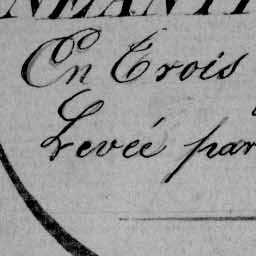 NÉANTI
En Trois
Levée par